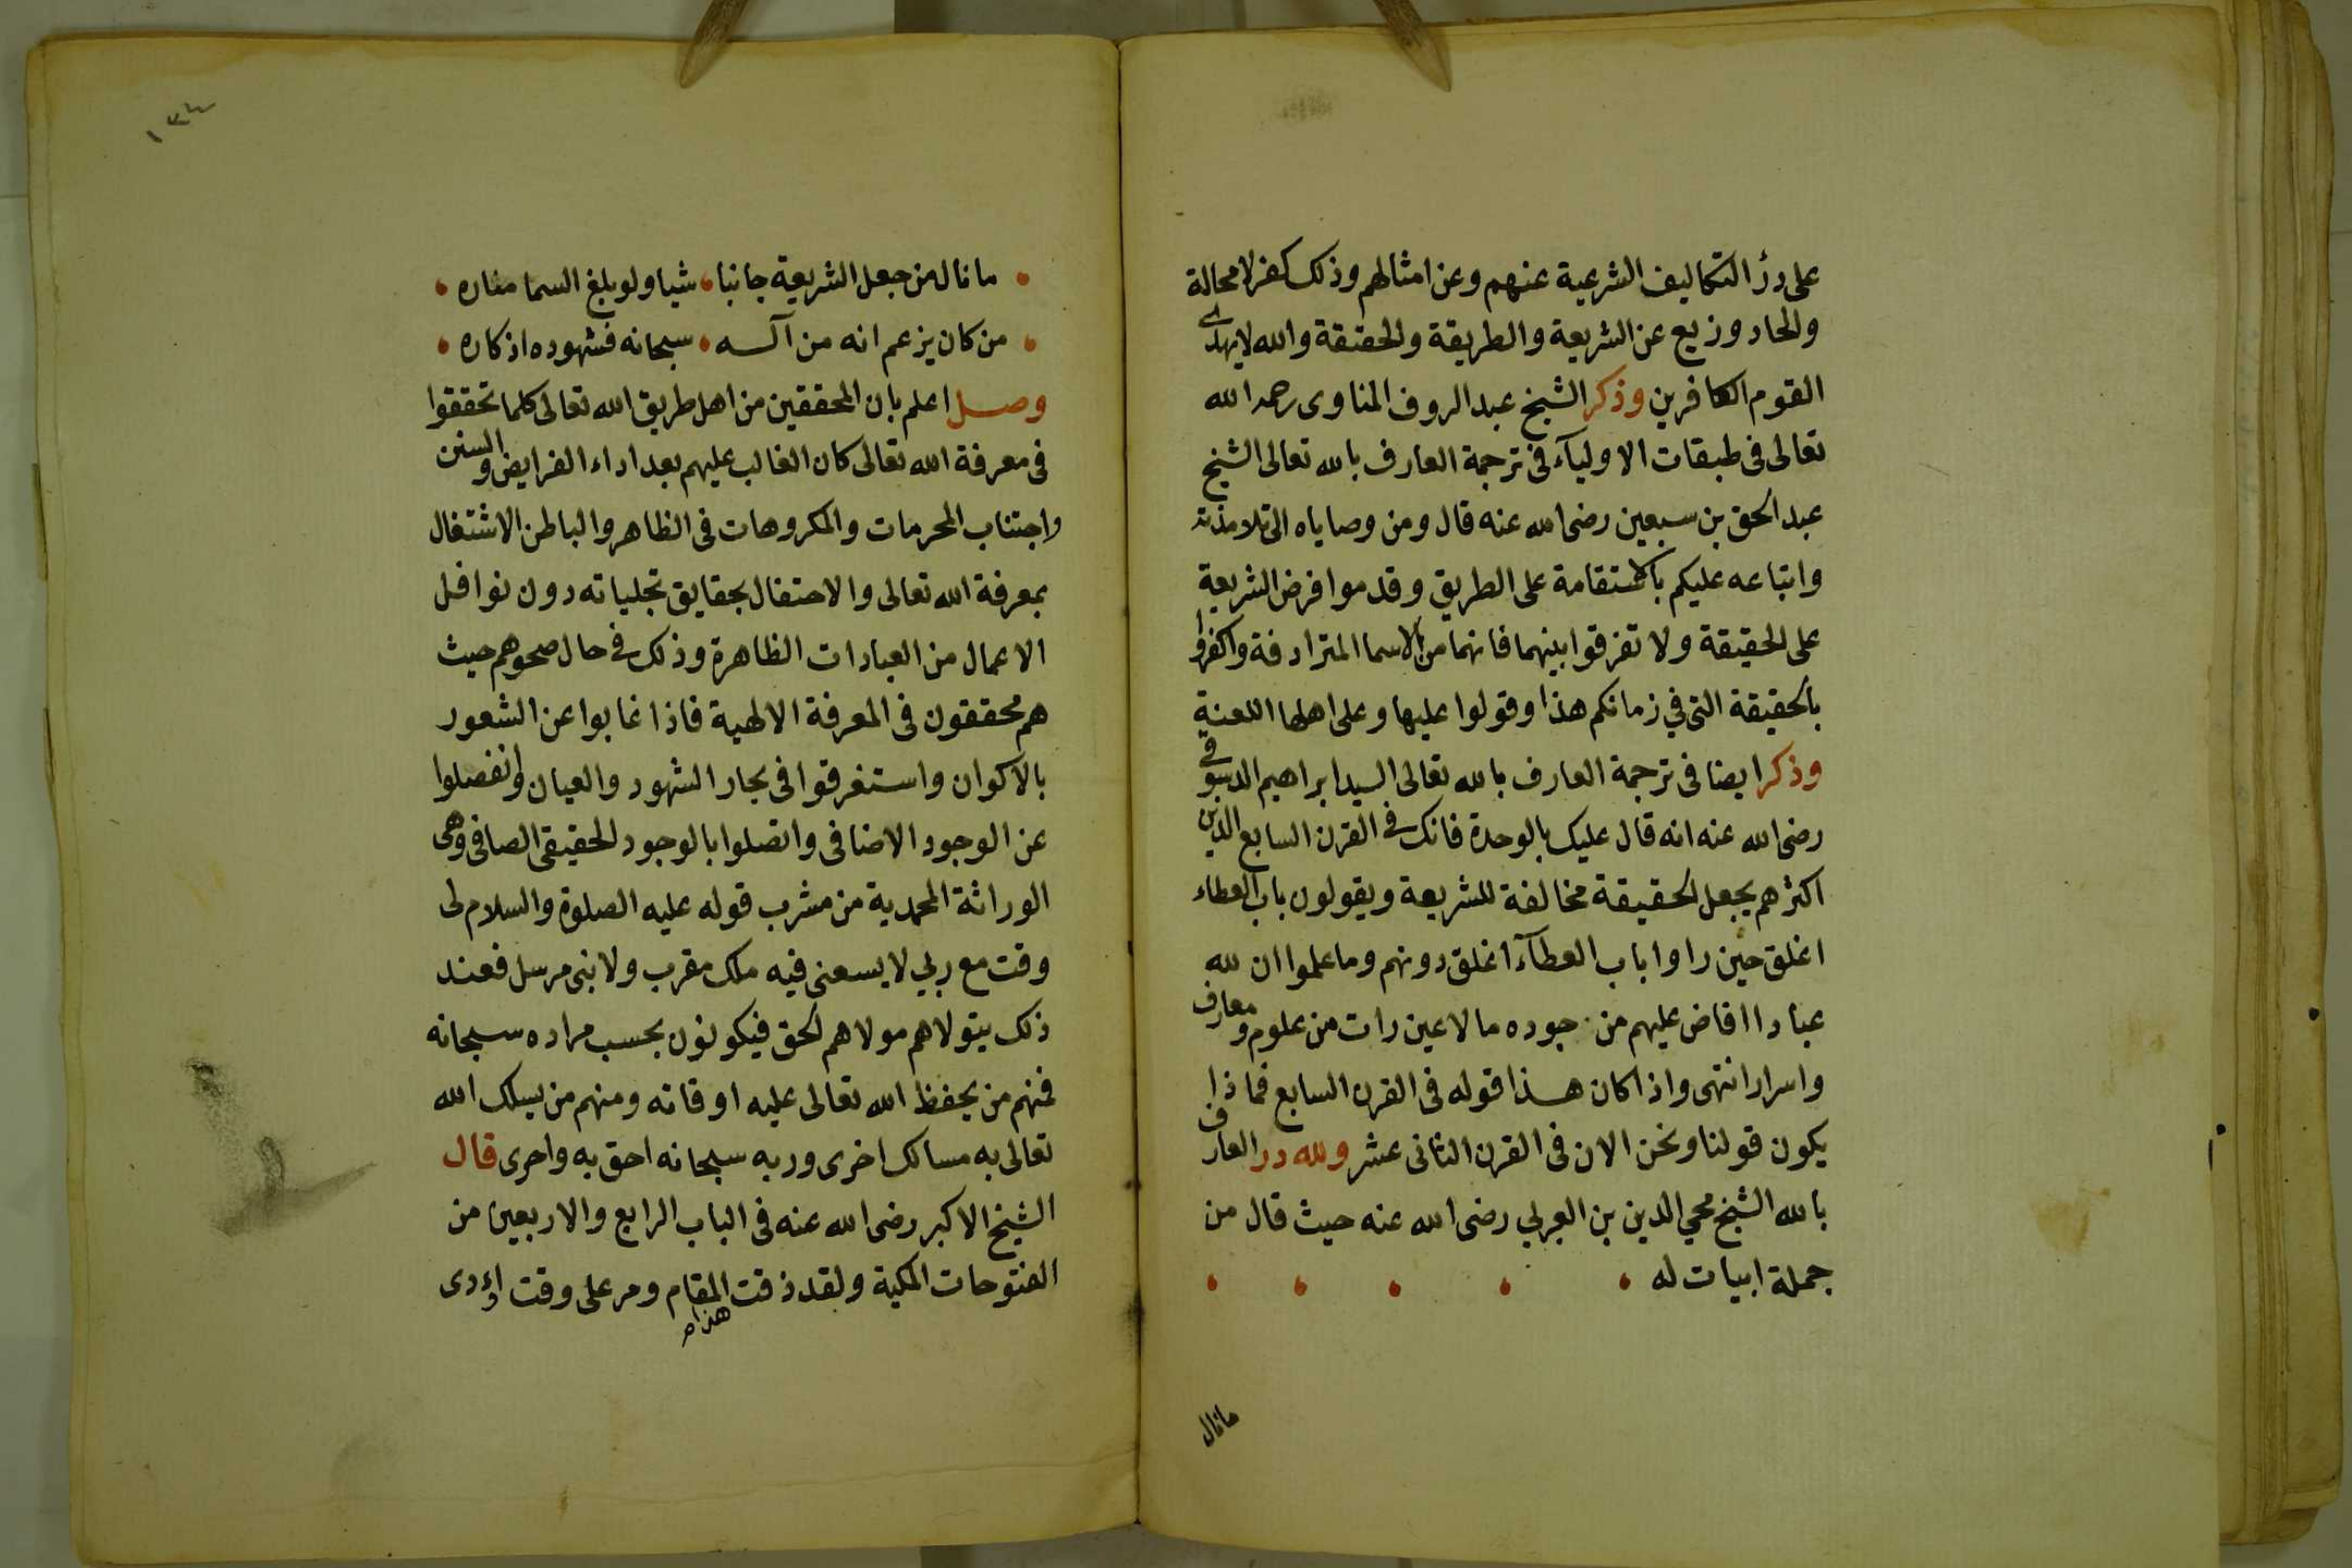 على درُ التكاليف الشرعية عنهم وعن امثالهم وذلك كفر لا محالة
والحاد وزيع عن الشريعة والطريقة والحقيقة والله لا يهدى
القوم الكافرين وذكر الشيخ عبد الروف المناوى رحمه الله
تعالى فى طبقات الاوليآء فى ترجمة العارف بالله تعالى الشيخ
عبد الحق بن سبعين رضى الله عنه قال ومن وصاياه الى تلامذته
واتباعه عليكم بالاستقامة على الطريق وقدموا فرض الشريعة
على الحقيقة ولا تفرقوا بينهما فانهما من الاسما المترادفة واكفروا
بالحقيقة التى في زمانكم هذا وقولوا عليها وعلى اهلها اللعنة
وذكر ايضا فى ترجمة العارف بالله تعالى السيد ابراهيم الدسوقى
رضى الله عنه انه قال عليك بالوحدة فانك فى القرن السابع الذين
اكثرهم يجعل الحقيقة مخالفة للشريعة ويقولون باب العطاء
اغلق حين راوا باب العطآء اغلق دونهم وما علموا ان لله
عبادا افاض عليهم من جوده ما لا عين رات من علوم ومعارف
واسرار انتهى واذا كان هذا قوله فى القرن السابع فما ذا
يكون قولنا ونحن الان فى القرن الثانى عشر ولله در العارف
بالله الشيخ محي الدين بن العربي رضى الله عنه حيث قال من
جملة ابيات له
ما نال
١٣٤
ما نال من جعل الشريعة جانبا شيا ولو بلغ السما مناره
من كان يزعم انه من آله سبحانه فشهوده اذكاره
وصل اعلم بان المحققين من اهل طريق الله تعالى كلما تحققوا
فى معرفة الله تعالى كان الغالب عليهم بعد اداء الفرايض والسنن
واجتناب المحرمات والمكروهات فى الظاهر والباطن الاشتغال
بمعرفة الله تعالى والاحتفال بحقايق تجلياته دون نوافل
الاعمال من العبادات الظاهرة وذلك فى حال صحوهم حيث
هم محققون فى المعرفة الالهية فاذا غابوا عن الشعور
بالاكوان واستغرقوا فى بحار الشهود والعيان وانفصلوا
عن الوجود الاضافى واتصلوا بالوجود الحقيقى الصافى وهى
الوراثة المحمدية من مشرب قوله عليه الصلوة والسلام لى
وقت مع ربي لا يسعنى فيه ملك مقرب ولا نبى مرسل فعند
ذلك يتولاهم مولاهم الحق فيكونون بحسب مراده سبحانه
فمنهم من يحفظ الله تعالى عليه اوقاته ومنهم من يسلك الله
تعالى به مسالك اخرى وربه سبحانه احق به واحرى قال
الشيخ الاكبر رضى الله عنه فى الباب الرابع والاربعين من
الفتوحات المكية ولقد ذقت هذا المقام ومر على وقت اؤدى